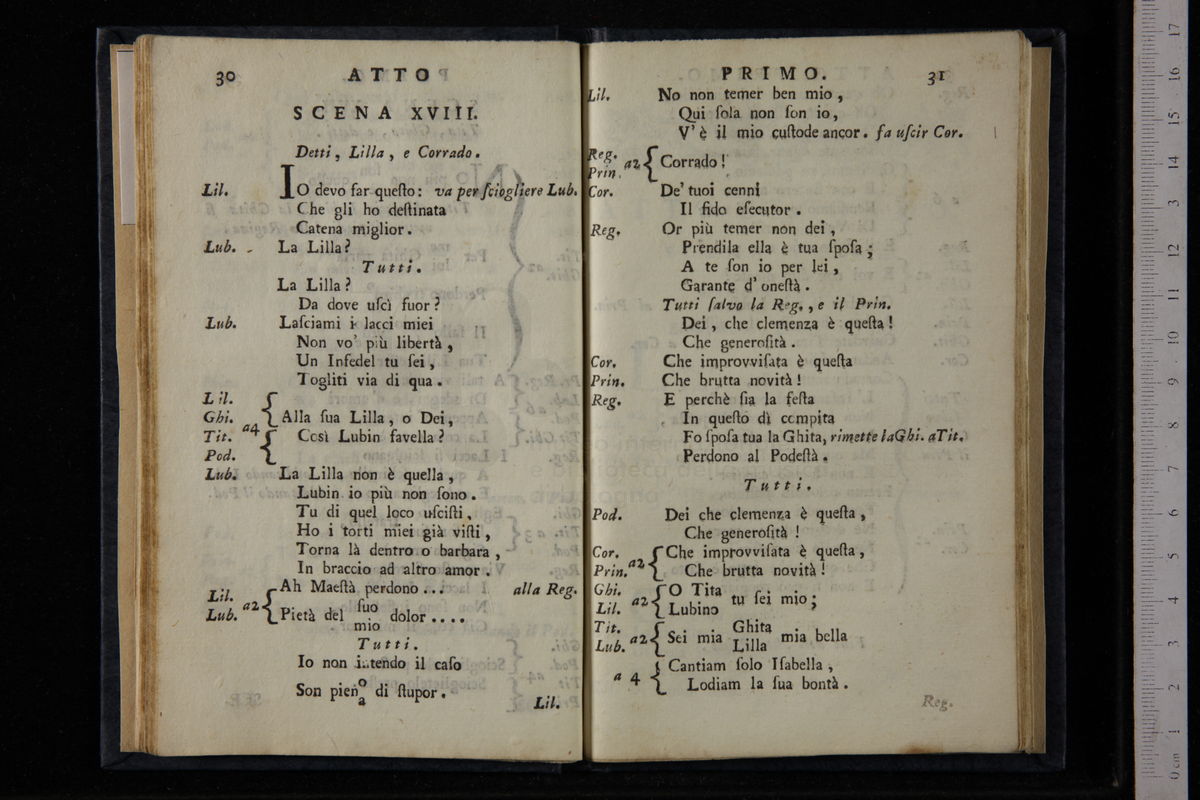 30 ATTO
SCENA XVIII.
Detti, Lilla, e Corrado.
Lil. IO devo far queſto: va per ſciogliere Lub.
Che gli ho deſtinata
Catena miglior.
Lub. La Lilla?
Tutti.
La Lilla?
Da dove uſcì fuor?
Lub. Laſciami i lacci miei
Non vo' più libertà,
Un Infedel tu ſei,
Togliti via di qua.
Lil.
Ghi. Alla ſua Lilla, o Dei,
a4
Tit. Così Lubin favella?
Pod.
Lub. La Lilla non è quella,
Lubin io più non ſono.
Tu di quel loco uſciſti,
Ho i torti miei già viſti,
Torna là dentro o barbara,
In braccio ad altro amor.
Lil. Ah Maeſtà perdono... alla Reg.
a2
Lub. Pietà del ſuo mio dolor....
Tutti.
Io non intendo il caſo
Son pieno a di ſtupor.
Lil.
PRIMO. 31
Lil. No non temer ben mio,
Qui ſola non ſon io,
V'è il mio cuſtode ancor. fa uſcir Cor.
Reg.
Prin. a2 Corrado!
Cor. De' tuoi cenni
Il fido eſecutor.
Reg. Or più temer non dei,
Prendila ella è tua ſpoſa;
A te ſon io per lei,
Garante d'oneſtà.
Tutti ſalvo la Reg., e il Prin.
Dei, che clemenza è queſta!
Che generoſità.
Cor. Che improvviſata è queſta
Prin. Che brutta novità!
Reg. E perchè ſia la feſta
In queſto dì compita
Fo ſpoſa tua la Ghita, rimette la Ghi. a Tit.
Perdono al Podeſtà.
Tutti.
Pod. Dei che clemenza è queſta,
Che generoſità!
Cor. Che improvviſata è queſta,
a2
Prin. Che brutta novità!
Ghi. O Tita
a2 tu ſei mio;
Lil. Lubino
Tit. Ghita
a2 Sei mia mia bella
Lub. Lilla
Cantiam ſolo Iſabella,
a 4
Lodiam la ſua bontà.
Reg.